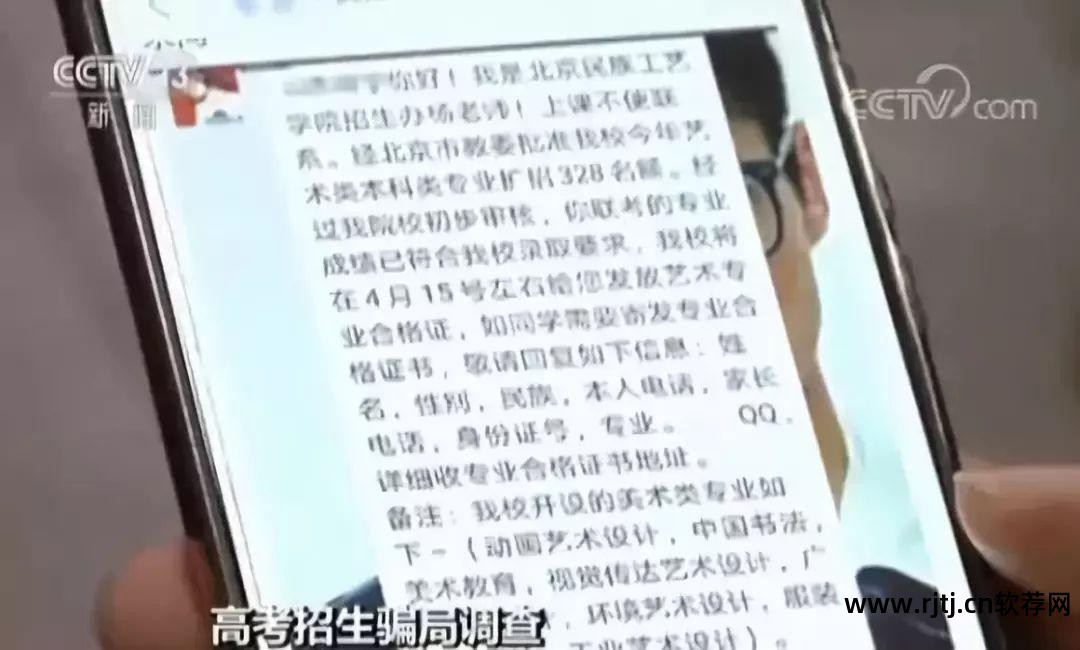 CCTV 13
新闻
CCTV.com
你好！我是北京民族工艺
学院招生办杨老师！上课不便联
系。经北京市教委批准我校今年艺
术类本科类专业扩招328名额。经
过我院校初步审核，你联考的专业
成绩已符合我校录取要求，我校将
在4月15号左右给您发放艺术专
业合格证，如同学需要寄发专业合
格证书，敬请回复如下信息：姓
名，性别，民族，本人电话，家长
电话，身份证号，专业。 QQ，
详细收专业合格证书地址。
备注：我校开设的美术类专业如
下-（动画艺术设计，中国书法，
美术教育，视觉传达艺术设计，广
，环境艺术设计，服装
工业艺术设计）。
高考招生骗局调查
www.rjtj.cn软荐网